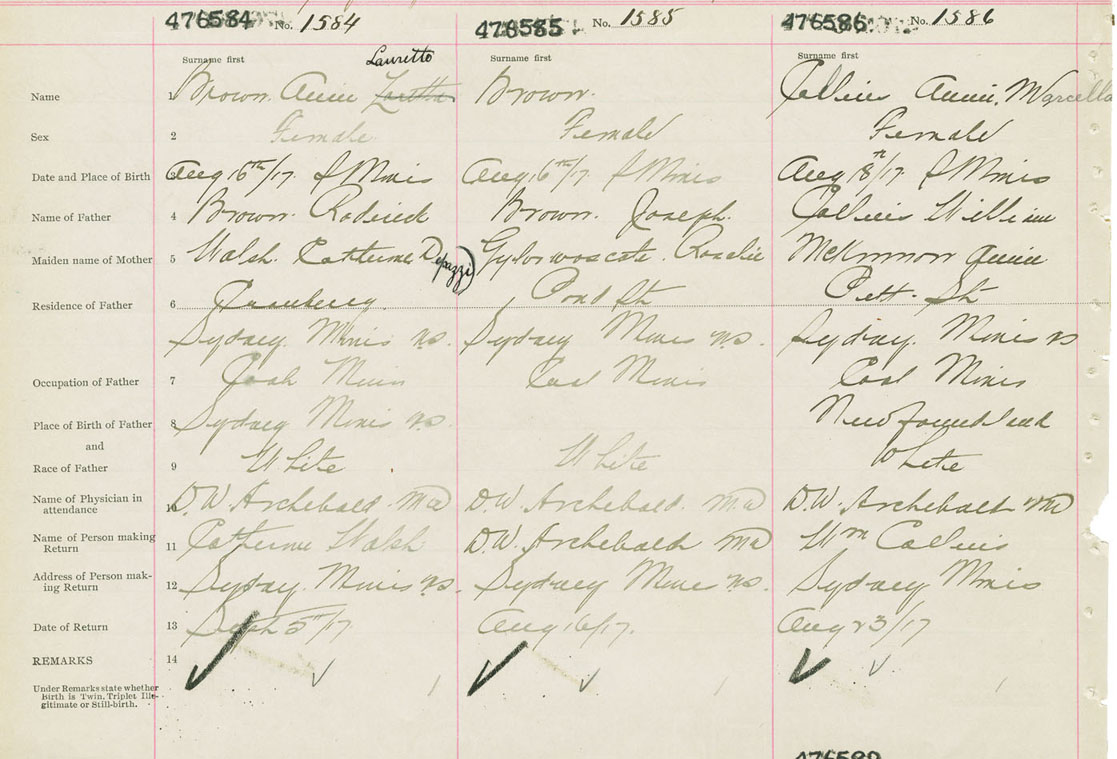 476584 No. 1584 476585 No. 1585 476586 No. 1586
Lauretto
Surname first Surname first Surname first
Name 1 Brown. Annie Loretta Brown. Collins Annie. Marcella
Sex 2 Female Female Female
Date and Place of Birth 3 Aug 16th/17. S Mines Aug 16th/17 S Mines Aug 18th/17 S Mines
Name of Father 4 Brown. Roderick Brown. Joseph. Collins William
Maiden name of Mother 5 Walsh. Catherine Rosalie McKinnon Annie
Residence of Father 6 Cranberry Pond St Pitt. St
Sydney Mines NS. Sydney Mines NS. Sydney. Mines NS
Occupation of Father 7 Mines Coal Mines Coal Mines
Place of Birth of Father 8 Sydney Mines NS. Newfoundland
and
Race of Father 9 White White White
Name of Physician in
attendance 10 D.W. Archebald. MD D.W. Archebald. MD D.W. Archebald MD
Name of Person making
Return 11 Catherine Walsh D.W. Archebald MD Wm Collins
Address of Person mak-
ing Return 12 Sydney. Mines NS. Sydney Mines NS. Sydney Mines
Date of Return 13 Sept 5th/17 Aug 16/17. Aug 23/17
REMARKS 14
Under Remarks state whether
Birth is Twin, Triplet Ille-
gitimate or Still-birth.